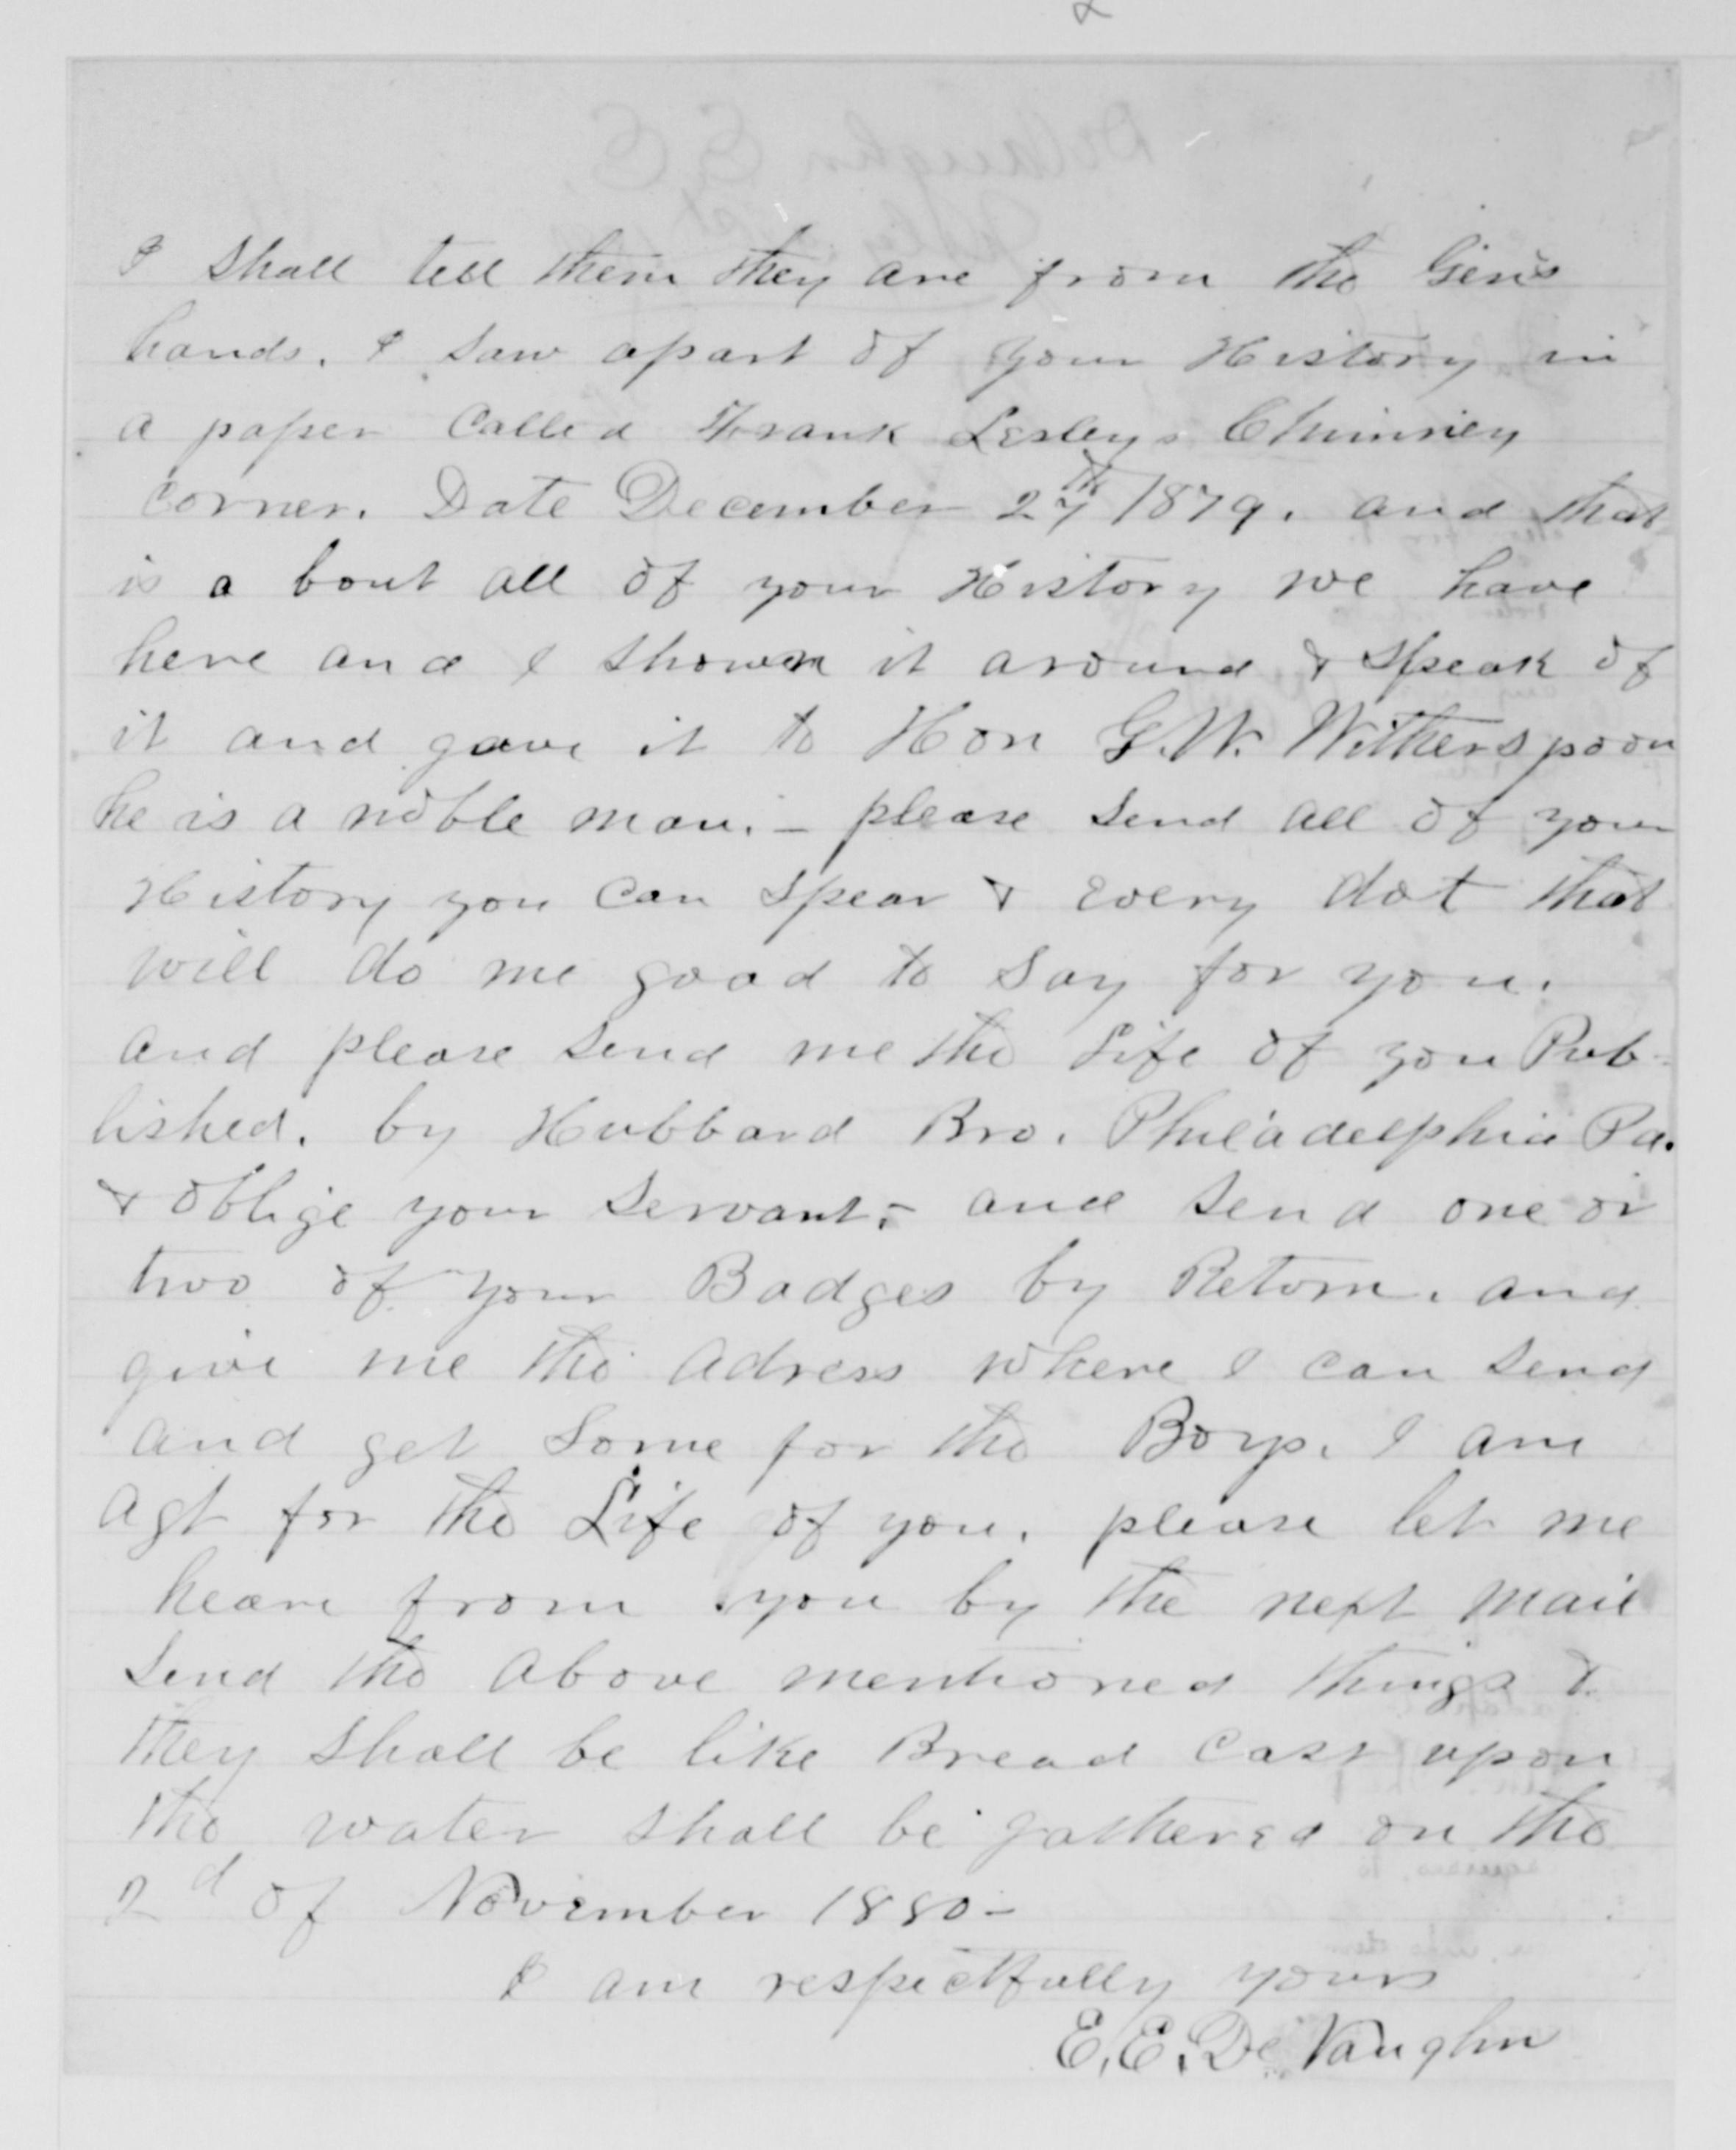 I shall tell them they are from the Gen's
hands. I saw apart of your History in
a paper Called Frank Lesleys Chimney
corner. Date December 27th 1879. and that
is a bout all of your History we have
here and I shown it around & speak of
it and gave it to Hon G.W. Witherspoon
he is a noble man. - please send all of your
History you can spear & every dot that
will do me good to say for you.
and please send me the Life of you Pub-
lished. by Hubbard Bro. Philadelphia Pa.
& oblige your servant. - and send one or
two of your Badges by Retorn. and
give me the adress where I can send
and get some for the Boys. I am
agt for the Life of you. please let me
hear from you by the next mail
send the above mentioned things &
they shall be like Bread cast upon
the water shall be gathered on the
2d of November 1880 -
I am respectfully yours
E. E. De Vaughn